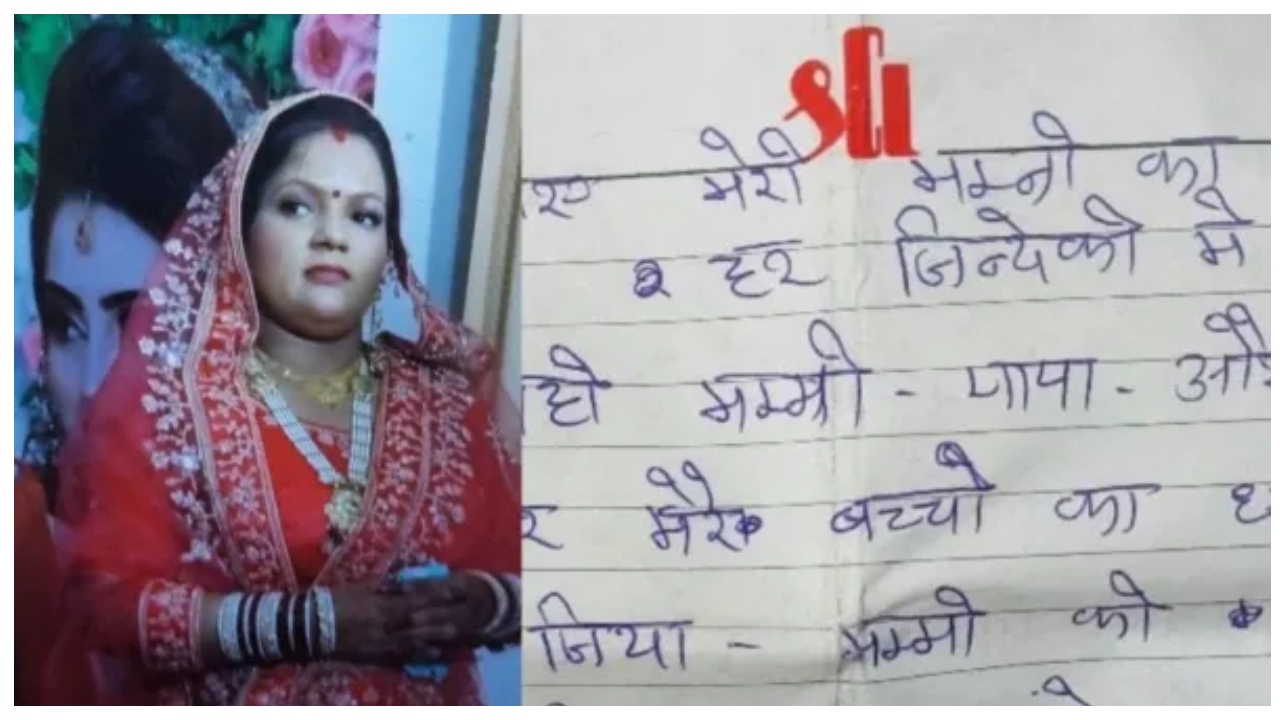 sCi
मेरी मम्नी का
हर जिन्देकी मे
हो मम्मी - पापा - और
र मेरे बच्चो का ध
जिया - मम्मी को